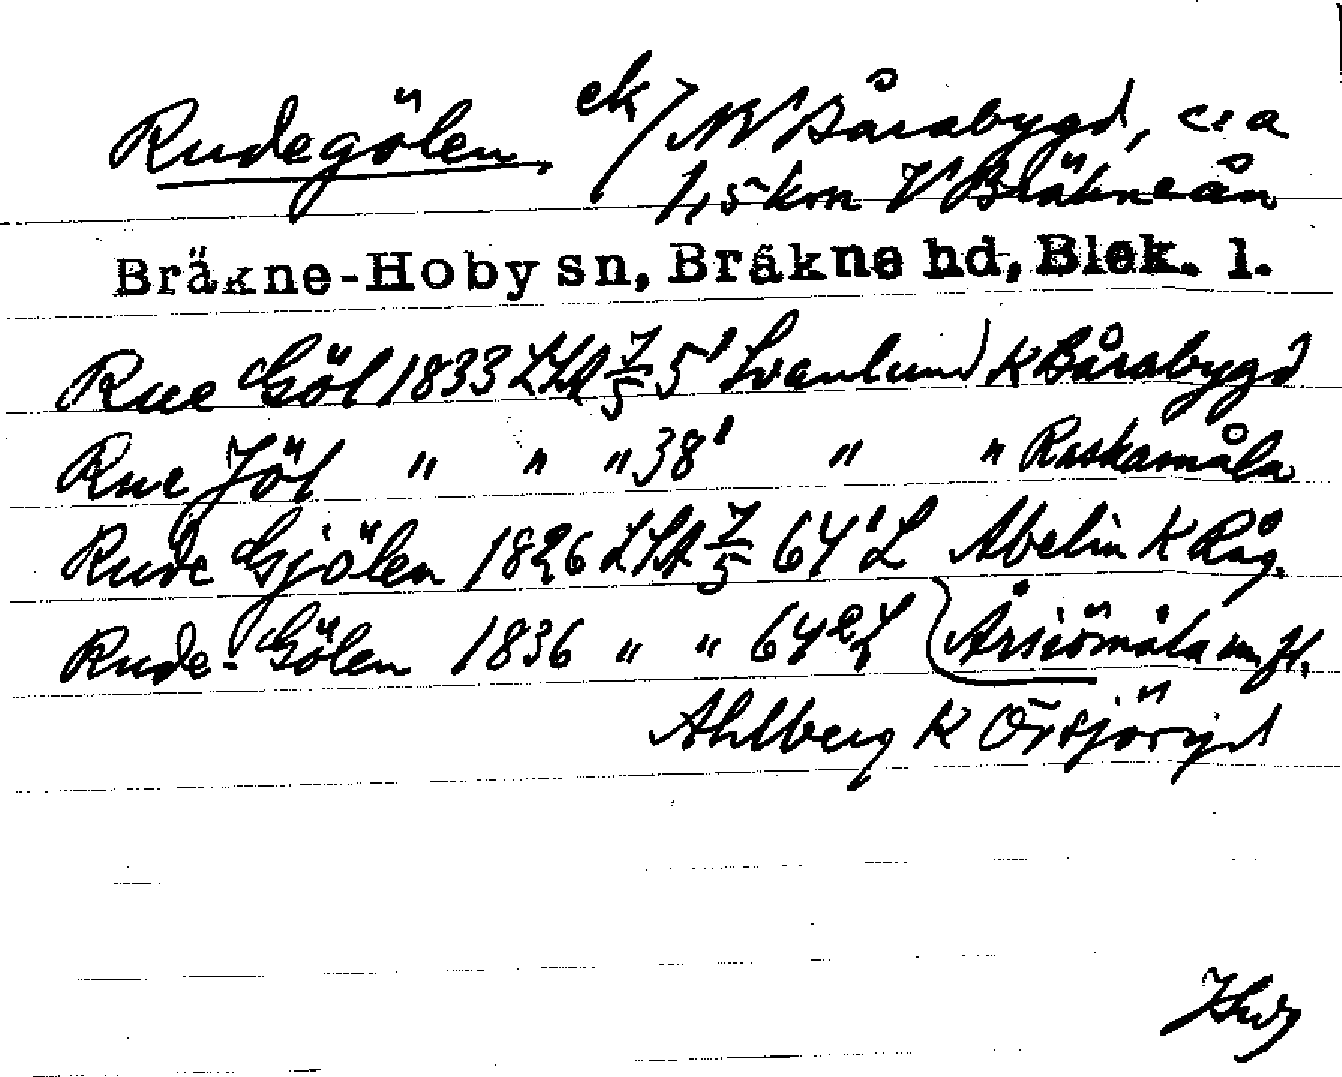 Rudegölen, ek/ NV Bårabygd, c:a
1,5 km V Bräkneån
Bräkne-Hoby sn, Bräkne hd, Blek. l.
Rue Göl 1833 LSA 7/5 5¹ Svanlund) K Bårabygd
Rue Jöl " " " 38¹ " " Raskamåla
Rude Gjölen 1826 LSA 7/5 64¹ L Abelin K Råg.
Rude-Gölen 1836 " " 64² L Årsiömåla m fl.
Ahlberg K Örsjöryd